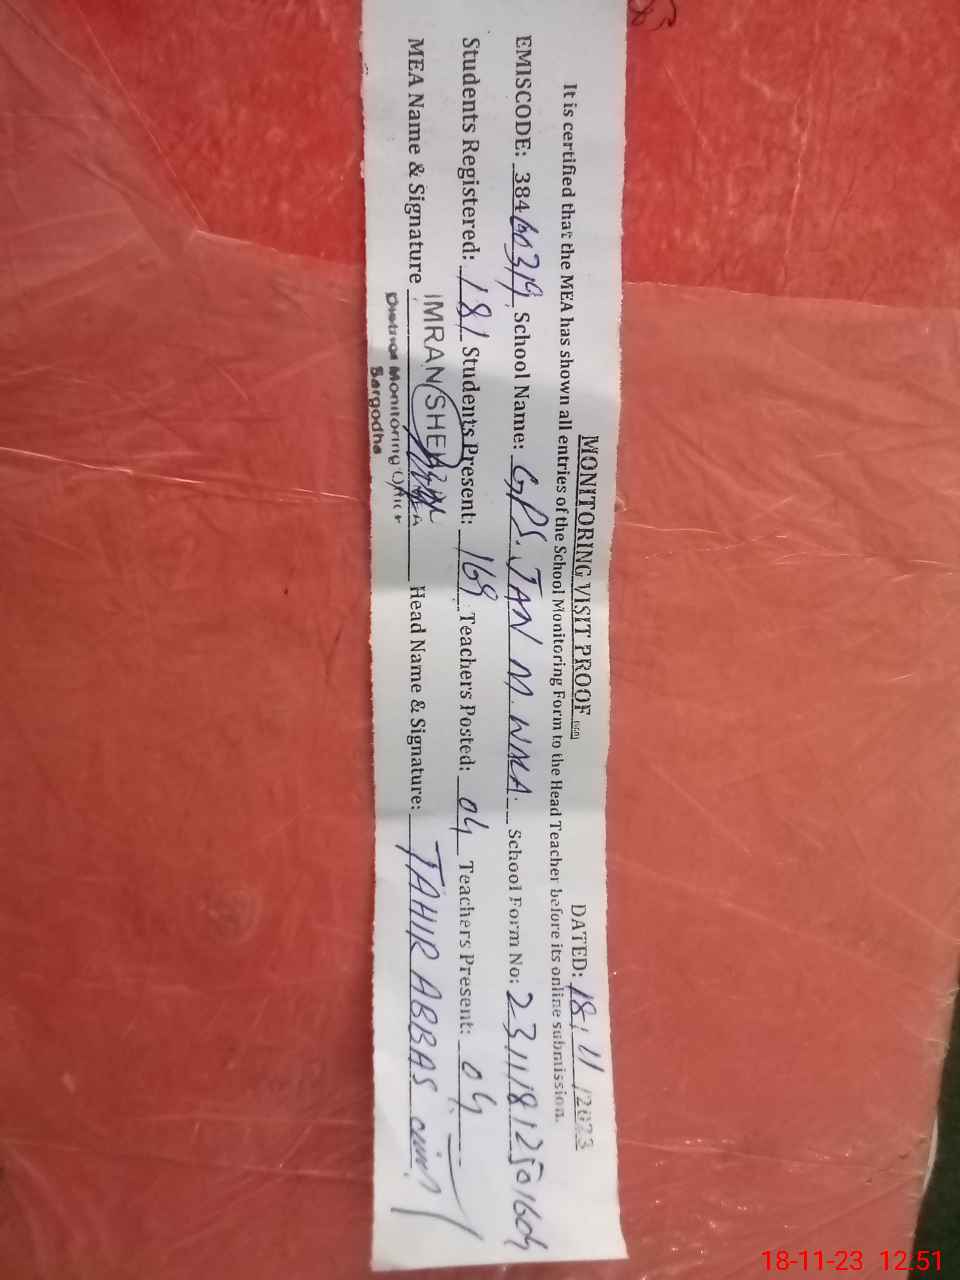 MONITORING VISIT PROOF (SGD)
DATED: 18/11/2023
It is certified that the MEA has shown all entries of the School Monitoring Form to the Head Teacher before its online submission.
EMISCODE: 384 School Name: GPS. JAN M. WALA. School Form No:
Students Registered: 181 Students Present: 169 Teachers Posted: 04 Teachers Present: 04
MEA Name & Signature IMRAN Head Name & Signature: TAHIR ABBAS
District Monitoring Officer
Sargodha
18-11-23 12:51